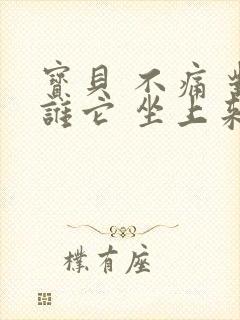 寶貝 不痛
誰它 坐上
樸有座